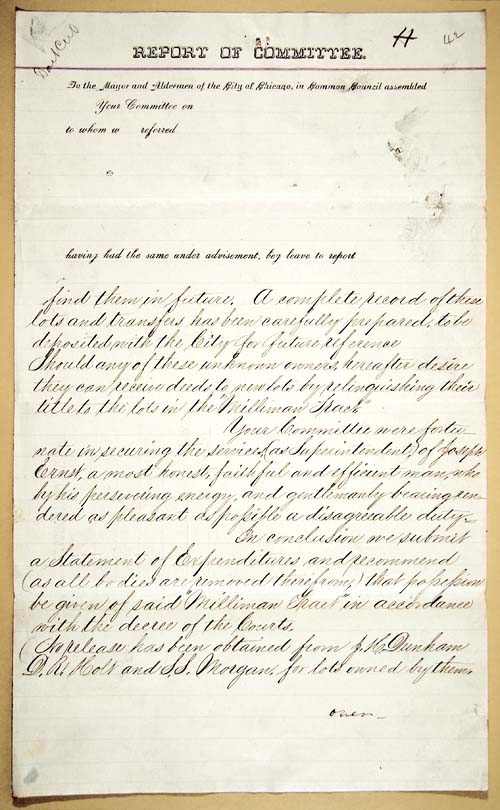 42
REPORT OF COMMITTEE.
To the Mayor and Aldermen of the City of Chicago, in Common Council assembled
Your Committee on
to whom w referred
having had the same under advisement, beg leave to report
find them in future. A complete record of these
lots and transfers has been carefully prepared, to be
deposited with the City for future reference
Should any of these unknown owners, hereafter desire
they can receive deeds to new lots by relenquishing their
title to the lots in the "Milliman Tract"
Your Committee were fortu-
nate in securing the services (as Superintendent) of Joseph
Ernst, a most honest, faithful and efficient man, who
by his persevering energy, and gentlemanly bearing ren-
dered as pleasant as possible a disagreeable duty-
In conclusion we submit
a Statement of Expenditures and recommend
(as all bodies are removed therefrom,) that possession
be given of said "Milliman Tract" in accordance
with the decree of the Courts.
(No release has been obtained from J. H. Dunham
D. A. Holt and S. S. Morgan, for lots owned by them.
over-